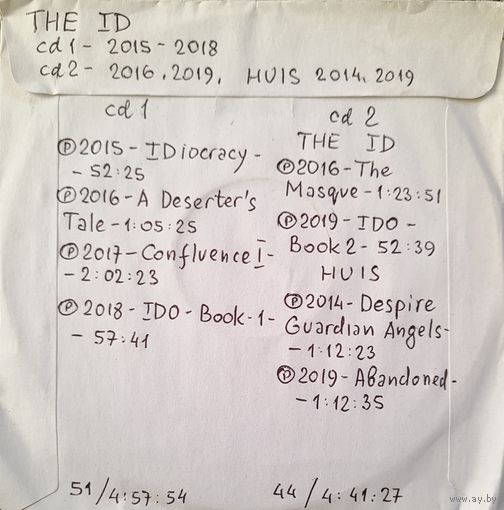 THE ID
cd1 - 2015 - 2018
cd2 - 2016, 2019, HUIS 2014, 2019
cd 1
℗2015 - IDiocracy -
- 52:25
℗2016 - A Deserter's
Tale - 1:05:25
℗2017 - Confluence I -
- 2:02:23
℗2018 - IDO - Book - 1 -
- 57:41
51/4:57:54
cd 2
THE ID
℗2016 - The
Masque - 1:23:51
℗2019 - IDO -
Book 2 - 52:39
HUIS
℗2014 - Despire
Guardian Angels -
- 1:12:23
℗2019 - Abandoned -
- 1:12:35
44/4:41:27
www.ay.by